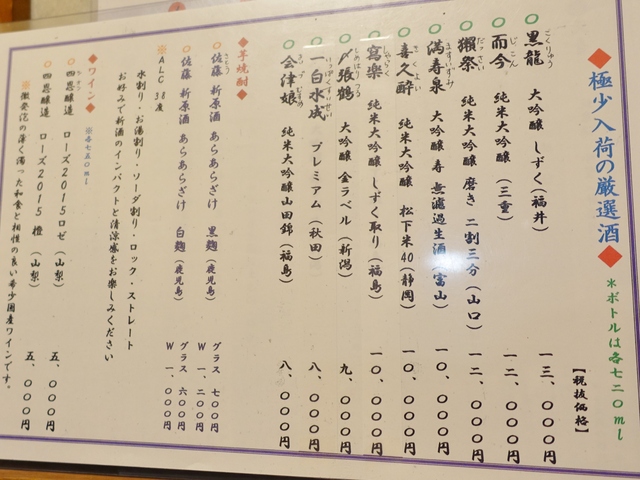 ◆極少入荷の厳選酒◆
＊ボトルは各七二〇ml
【税抜価格】
○黒龍 大吟醸 しずく（福井） 一三、〇〇〇円
○而今 純米大吟醸（三重） 一二、〇〇〇円
○獺祭 純米大吟醸 磨き 二割三分（山口） 一二、〇〇〇円
○満寿泉 大吟醸 寿 無濾過生酒（富山） 一〇、〇〇〇円
○喜久酔 純米大吟醸 松下米40（静岡） 一〇、〇〇〇円
○寫楽 純米大吟醸 しずく取り（福島） 一〇、〇〇〇円
○〆張鶴 大吟醸 金ラベル（新潟） 九、〇〇〇円
○一白水成 プレミアム（秋田） 八、〇〇〇円
○会津娘 純米大吟醸山田錦（福島） 八、〇〇〇円
◆芋焼酎◆
○佐藤 新原酒 あらあらざけ 黒麹（鹿児島） グラス 七〇〇円
W 一、二〇〇円
○佐藤 新原酒 あらあらざけ 白麹（鹿児島） グラス 六〇〇円
W 一、〇〇〇円
※ALC 38度
水割り・お湯割り・ソーダ割り・ロック・ストレート
お好みで新酒のインパクトと清涼感をお楽しみください
◆ワイン◆ ※各七五〇ml
○四恩醸造 ローズ2015ロゼ（山梨） 五、〇〇〇円
○四恩醸造 ローズ2015橙（山梨） 五、〇〇〇円
※微発泡の薄く濁った和食と相性の良い希少国産ワインです。